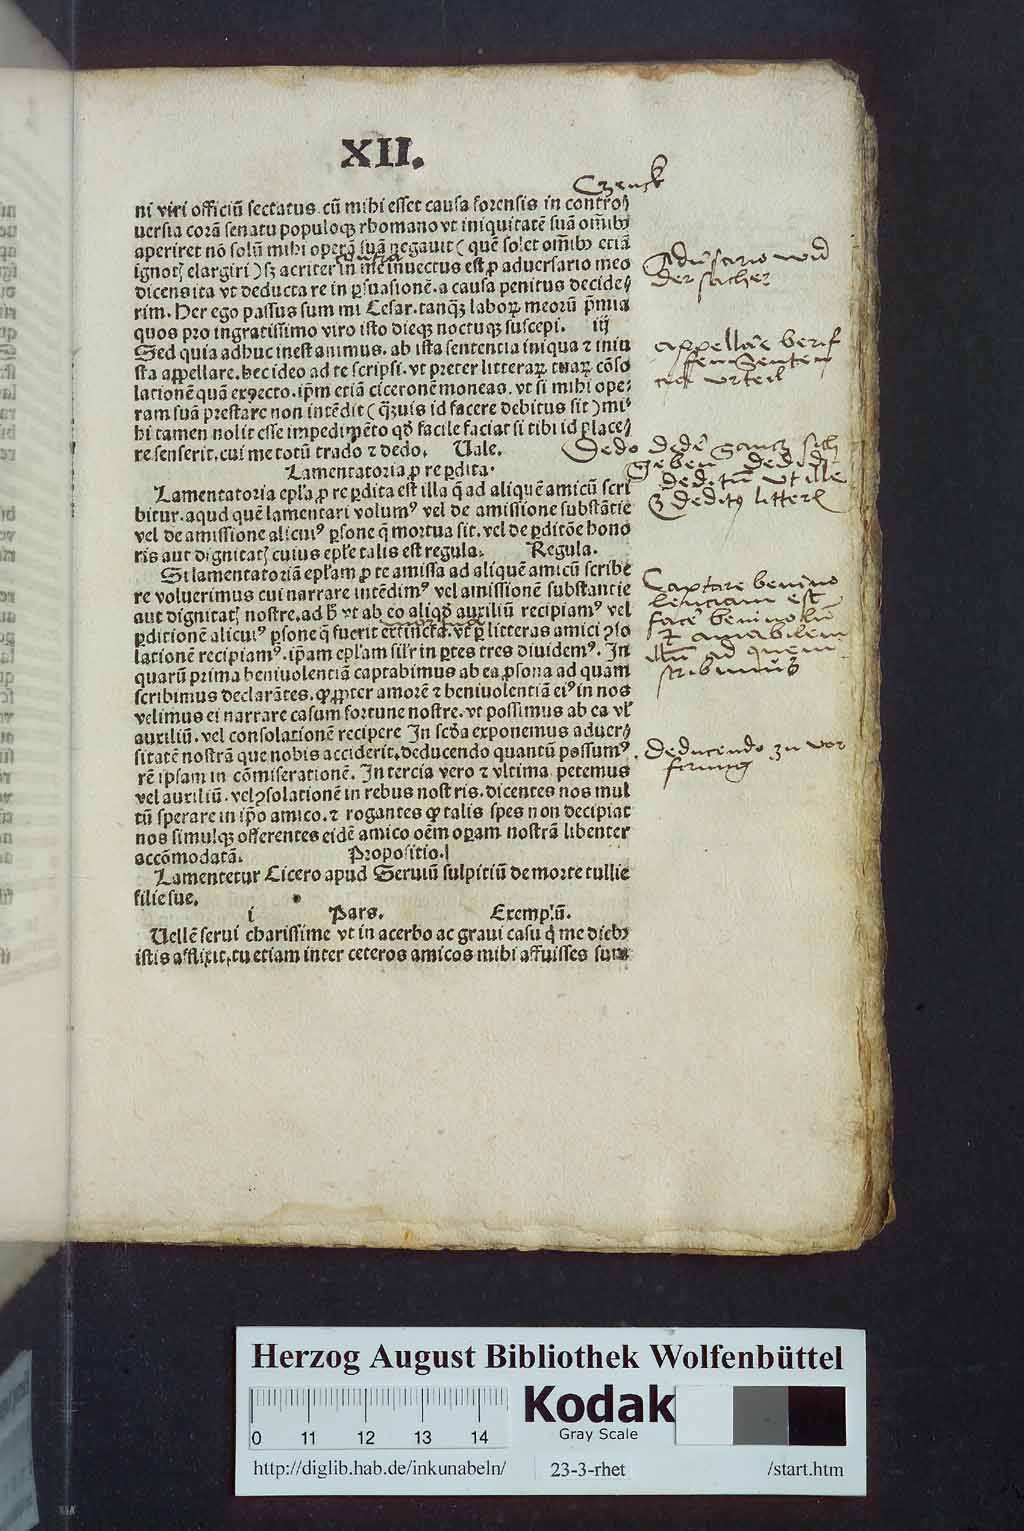 XII.
Czenck
ni viri officiū sectatus. cū mihi esset causa forensis in contro⸗
uersia corā senatu populoqꝫ rhomano vt iniquitatē suā om̄ibꝫ
aperiret nō solū mihi operā suā negauit (quē solet om̄ibꝫ etiā
ignotꝭ elargiri) sꝫ acriter in me inuectus est ꝓ aduersario meo
dicens ita vt deducta re in ꝑsuasionē. a causa penitus decide⸗
rim. Hec ego passus sum mi Cesar. tanqꝫ laboꝝ meorū p̄mia
quos pro ingratissimo viro isto dieqꝫ noctuqꝫ suscepi. iij
Sed quia adhuc inest animus. ab ista sententia iniqua ⁊ iniu
sta appellare. hec ideo ad te scripsi. vt preter litteraꝝ tuaꝝ cōso
lationē quā expecto. ip̄m etiā ciceronē moneas. vt si mihi ope⸗
ram suā prestare non intēdit (qꝫuis id facere debitus sit) mi⸗
hi tamen nolit esse impedimēto qd̄ facile faciat si tibi id place⸗
re senserit. cui me totū trado ⁊ dedo. Uale.
Lamentatoria ꝓ re ꝑdita.
Lamentatoria epl̄a ꝓ re ꝑdita est illa q̄ ad aliquē amicū scri
bitur. apud quē lamentari volumꝰ vel de amissione substātie
vel de amissione alicuiꝰ ꝑsone q̄ mortua sit. vel de ꝑditōe hono
ris aut dignitatꝭ cuius epl̄e talis est regula. Regula.
Si lamentatoriā epl̄am ꝓ re amissa ad aliquē amicū scribe
re voluerimus cui narrare intēdimꝰ vel amissionē substantie
aut dignitatꝭ nostre. ad h̄ vt ab eo aliqd̄ auxiliū recipiamꝰ vel
ꝑditionē alicuiꝰ ꝑsone q̄ fuerit extincta. vt ꝑ litteras amici ꝯso
lationē recipiamꝰ. ip̄am epl̄am sil̄r in ꝑtes tres diuidemꝰ. In
quarū prima beniuolentiā captabimus ab ea ꝑsona ad quam
scribimus declarātes. ꝙ ꝓpter amorē ⁊ beniuolentiā eiꝰ in nos
velimus ei narrare casum fortune nostre. vt possimus ab ea vl̄
auxiliū. vel consolationē recipere In scd̄a exponemus aduer⸗
sitatē nostrā que nobis acciderit. deducendo quantū possumꝰ.
rē ipsam in cōmiserationē. In tercia vero ⁊ vltima petemus
vel auxiliū. vel ꝯsolationē in rebus nostris. dicentes nos mul
tū sperare in ip̄o amico. ⁊ rogantes ꝙ talis spes non decipiat
nos simulqꝫ offerentes eidē amico oēm oꝑam nostrā libenter
accōmodatā. Propositio.
Lamentetur Cicero apud Seruiū sulpitiū de morte tullie
filie sue.
i Pars. Exemplū.
Uellē serui charissime vt in acerbo ac graui casu q̄ me diebꝫ
istis afflixit. tu etiam inter ceteros amicos mihi affuisses sum
Adūsario wid
der sacher
appellare berif
fen Senten
cia vrteil
Dedo dedē Gancz sich
geben dedidi
deditū vt ille
dedit litter
Captare benino
lenciam est
facē beninolū
⁊ amabilem
illū ad quem
scribimus
Deducendo zu vor
ferung
Herzog August Bibliothek Wolfenbüttel
0 11 12 13 14
Kodak
Gray Scale
http://diglib.hab.de/inkunabeln/ 23-3-rhet /start.htm